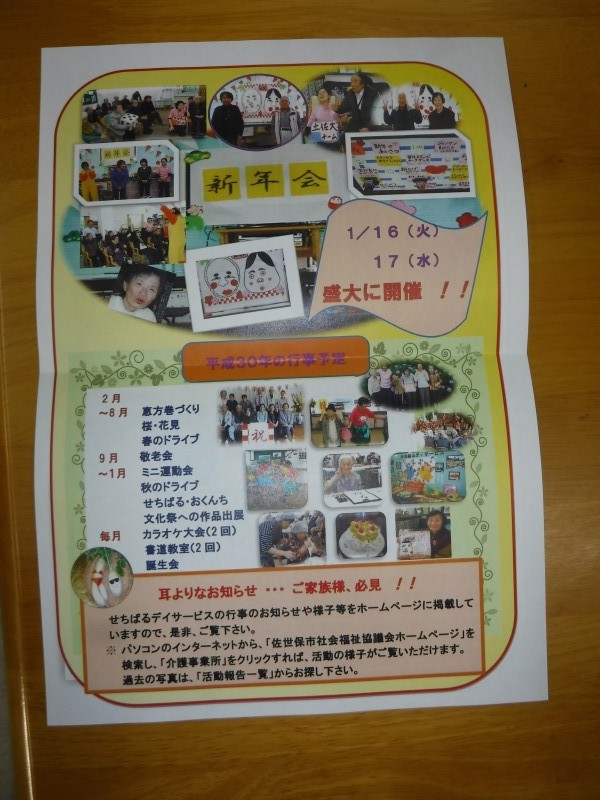 新年会
土佐犬
チーム
新年会
1/16(火)
17(水)
盛大に開催 !!
平成30年の行事予定
2月
~8月 恵方巻づくり
桜・花見
春のドライブ
9月 敬老会
~1月 ミニ運動会
秋のドライブ
せちばる・おくんち
文化祭への作品出展
毎月 カラオケ大会(2回)
書道教室(2回)
誕生会
祝
耳よりなお知らせ ・・・ ご家族様、必見 !!
せちばるデイサービスの行事のお知らせや様子等をホームページに掲載して
いますので、是非、ご覧下さい。
※ パソコンのインターネットから、「佐世保市社会福祉協議会ホームページ」を
検索し、「介護事業所」をクリックすれば、活動の様子がご覧いただけます。
過去の写真は、「活動報告一覧」からお探し下さい。